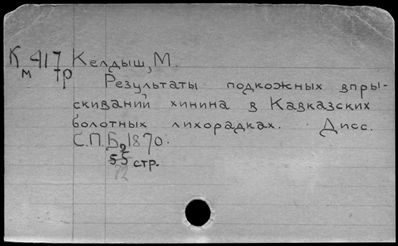 К 417 Келдыш, М.
м тр
Результаты подкожных впры-
скиваний хинина в Кавказских
болотных лихорадках. Дисс.
С.П.Б., 1870.
55 стр.